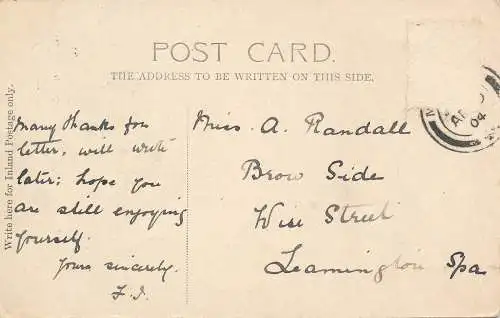 POST CARD.
THE ADDRESS TO BE WRITTEN ON THIS SIDE.
Write here for Inland Postage only.
Many thanks for
letter, will write
later; hope you
are still enjoying
yourself.
Yours sincerely.
F.I.
Miss A. Randall
Brow Side
Wise Street
Leamington Spa
04